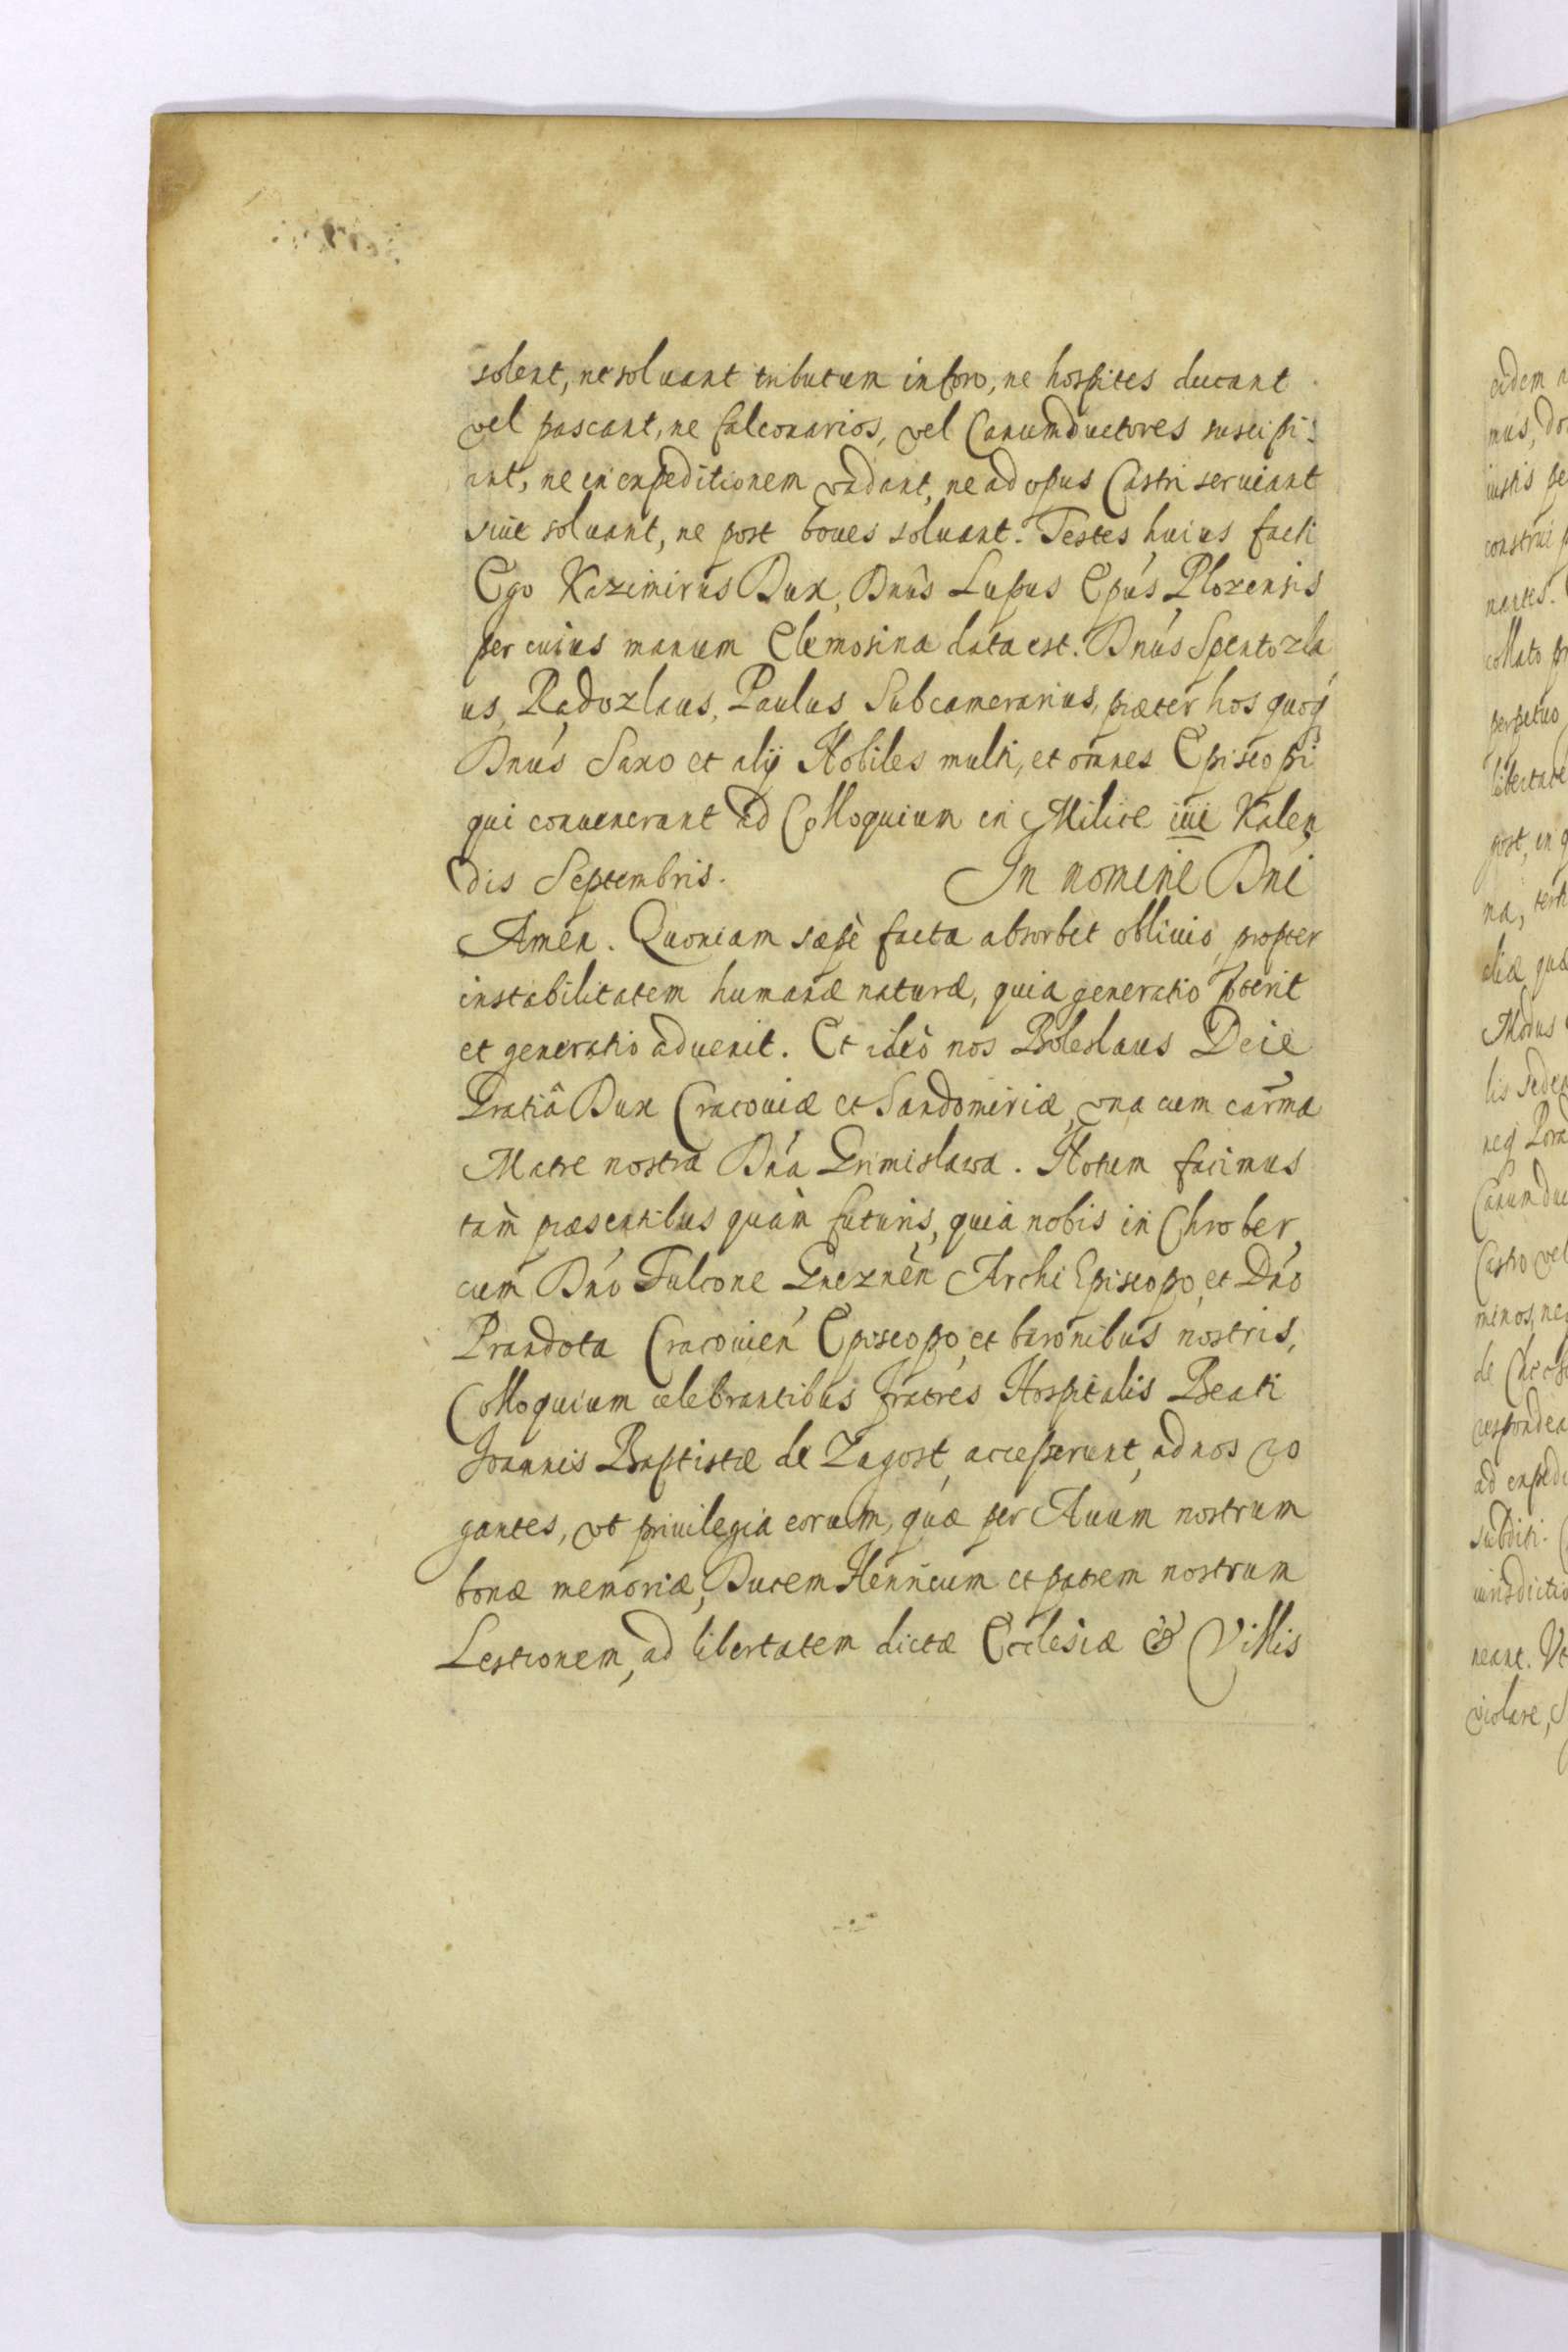 solent, ne soluant tributum in foro, ne hospites ducant
vel pascant, ne falconarios, vel Canumductores suscipi:
ant, ne in expeditionem vadant, ne ad opus Castri seruiant
siue soluant, ne post boues soluant. Testes huius facti
Ego Kazimirus Dux, Dnus Lupus Epus Plozensis
per cuius manum Elemosina data est. Dnus Spentozla
us, Radozlaus, Paulus Subcamerarius, præter hos quoq
Dnus Saxo et alij Nobiles multi, et omnes Episcopi
qui conuenerant ad Colloquium in Milice iiii Kalen
dis Septembris. In nomine Dni
Amen. Quoniam sæpè facta absorbet obliuio, propter
instabilitatem humanæ naturæ, quia generatio præterit
et generatio aduenit. Et ideò nos Boleslaus Dei
Gratiâ Dux Cracouiæ et Sandomiriæ, vna cum carma
Matre nostra Dna Grimislawa. Notum facimus
tàm præsentibus quàm futuris, quia nobis in Chrober,
cum Dno Fulcone Gneznen Archi Episcopo, et Dno
Prandota Cracouien Episcopo, et baronibus nostris,
Colloquium celebrantibus fratres Hospitalis Beati
Joannis Baptistæ de Zagost, accesserunt, ad nos ro
gantes, vt priuilegia eorum, quæ per Auum nostrum
bonæ memoriæ, Ducem Henricum et patrem nostrum
Lestconem, ad libertatem dictæ Ecclesiæ & Villis